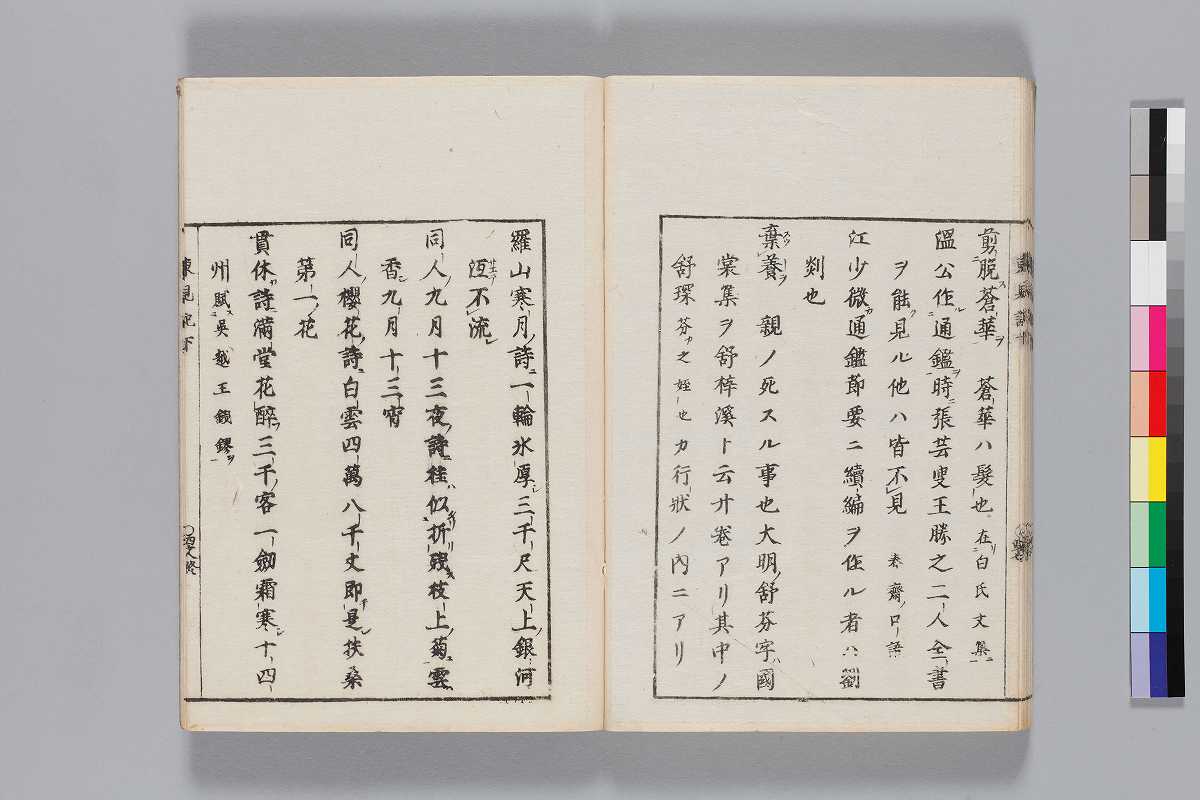 剪脱蒼華 蒼華ハ髮也在白氏文集
溫公作通鑑時張芸叟王勝之二人全書
ヲ能見ル他ハ皆不見 春齋口語
江少微通鑑節要ニ續編ヲ作ル者ハ劉
剡也
棄養 親ノ死スル事也大明舒芬字國
裳集ヲ舒梓溪ト云廾卷アリ其中ノ
舒琛芬之姪也カ行狀ノ內ニアリ
羅山寒月詩一輪氷厚三千尺天上銀河
沍不流
同人九月十三夜詩桂似折殘枝上菊雲
香九月十三宵
同人櫻花詩白雲四萬八千丈即是扶桑
第一花
貫休詩滿堂花醉三千客一劔霜寒十四
州賦吳越王錢鏐